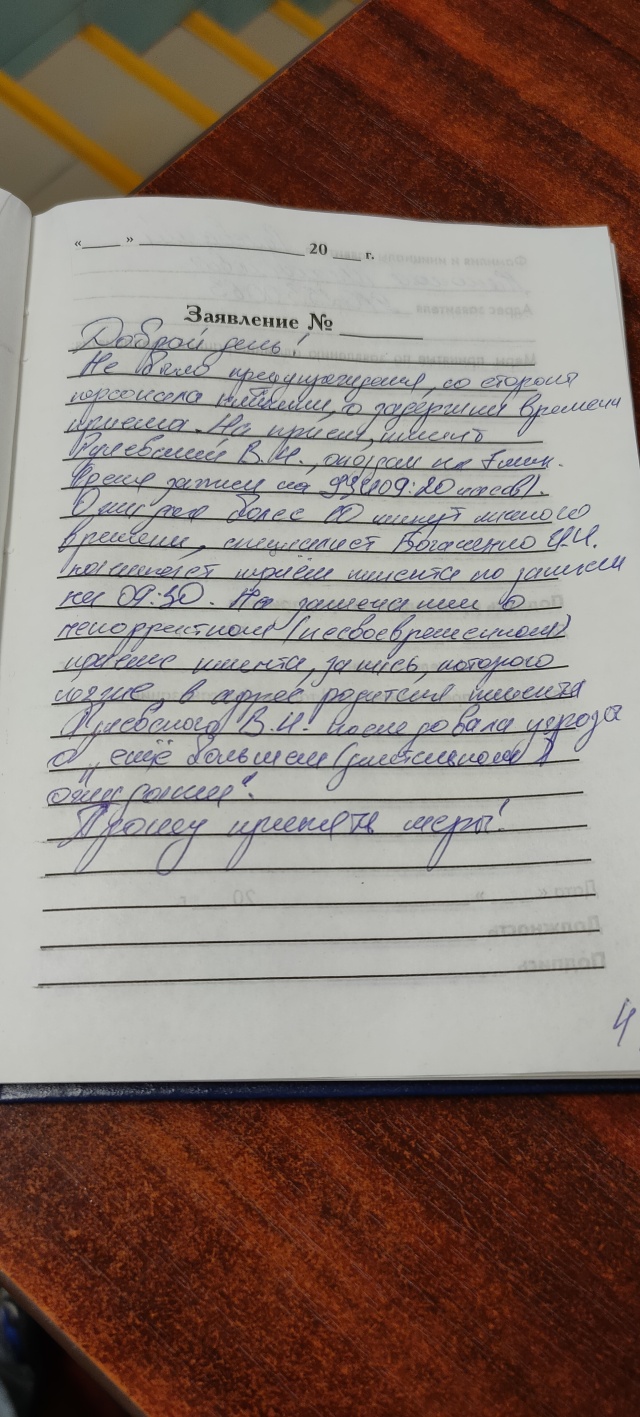 « » 20 г.
Заявление №
Добрый день!
Не было предупреждения, со стороны
персонала клиники, о задержки времени
приема. На прием, клиент
В.И., опоздал на 7 мин.
Время записи на 09:20 часов).
Ожидая более 10 минут личного
времени, специалист Богаченко И.И.
начинает приём клиента по записи
на 09:30. На замечании о
некорректном (несвоевременном)
приеме клиента, запись, которого
позже, в адрес родителя клиента
В.И. последовала угроза
о „ещё большем (длительном)
ожидании".
Прошу принять меры!
4